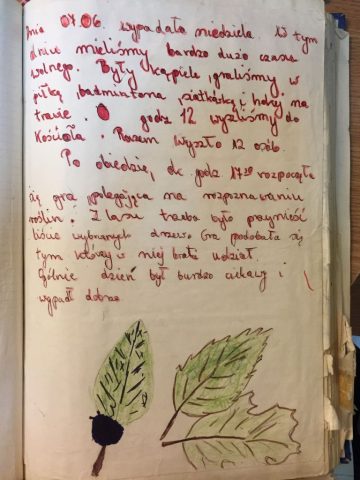 Dnia 07.06. wypadała niedziela. W tym
dniu mieliśmy bardzo dużo czasu
wolnego. Były kąpiele, graliśmy w
piłkę, badmintona, siatkarkę i hokej na
trawie. O godz 12 wyszliśmy do
Kościoła. Razem wyszło 12 osób.
Po obiedzie, ok godz 17³⁰ rozpoczęła
się gra polegająca na rozpoznawaniu
roślin. Z lasu trzeba było przynieść
liście wybranych drzew. Gra podobała się
tym którzy w niej brali udział.
Ogólnie dzień był bardzo ciekawy i
wypadł dobrze